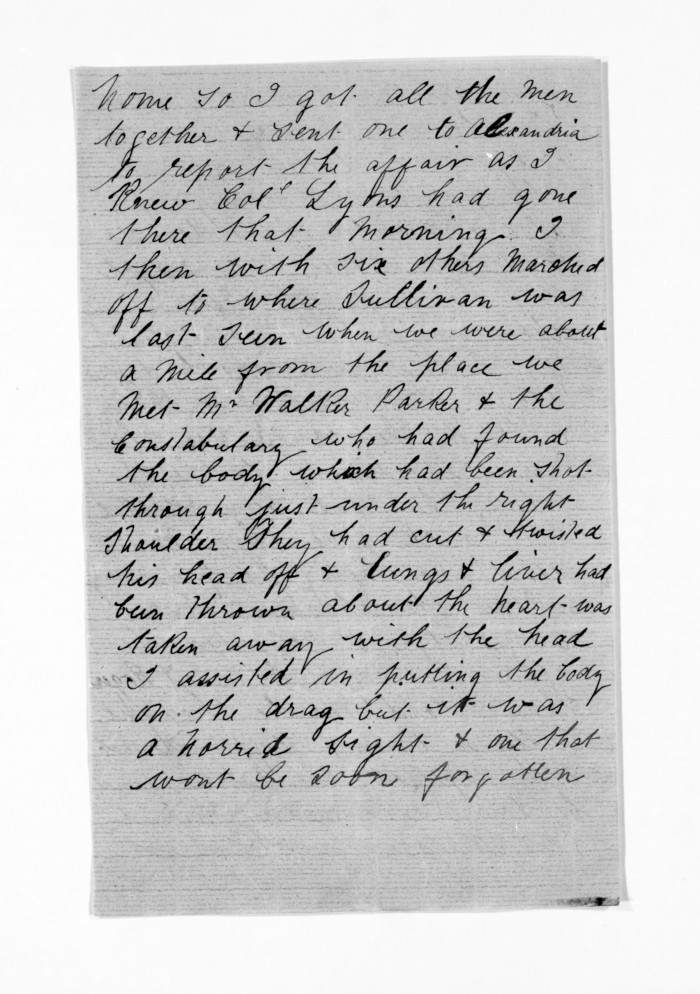 home so I got all the men
together & sent one to Alexandria
to report the affair as I
Knew Col^l Lyons had gone
there that morning. I
then with six others marched
off to where Sullivan was
last seen when we were about
a mile from the place we
met Mr Walker Parker & the
Constabulary who had found
the body which had been shot
through just under the right
shoulder They had cut & twisted
his head off & lungs & liver had
been thrown about the heart was
taken away with the head
I assisted in putting the body
on the drag but it was
a horrid sight & one that
wont be soon forgotten